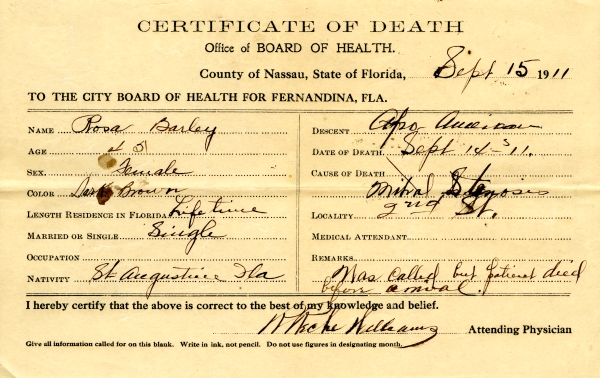 CERTIFICATE OF DEATH
Office of BOARD OF HEALTH.
County of Nassau, State of Florida, Sept 15 1911
TO THE CITY BOARD OF HEALTH FOR FERNANDINA, FLA.
NAME Rosa Barley
AGE 45
SEX. Female
COLOR Dark Brown
LENGTH RESIDENCE IN FLORIDA Life time
MARRIED OR SINGLE Single
OCCUPATION
NATIVITY St Augustine Fla
DESCENT Afro American
DATE OF DEATH Sept 14 - 11.
CAUSE OF DEATH
Mitral Stenosis
LOCALITY 2nd St.
MEDICAL ATTENDANT
REMARKS
Was called but patient died
before arrival.
I hereby certify that the above is correct to the best of my knowledge and belief.
Williams Attending Physician
Give all information called for on this blank. Write in ink, not pencil. Do not use figures in designating month.